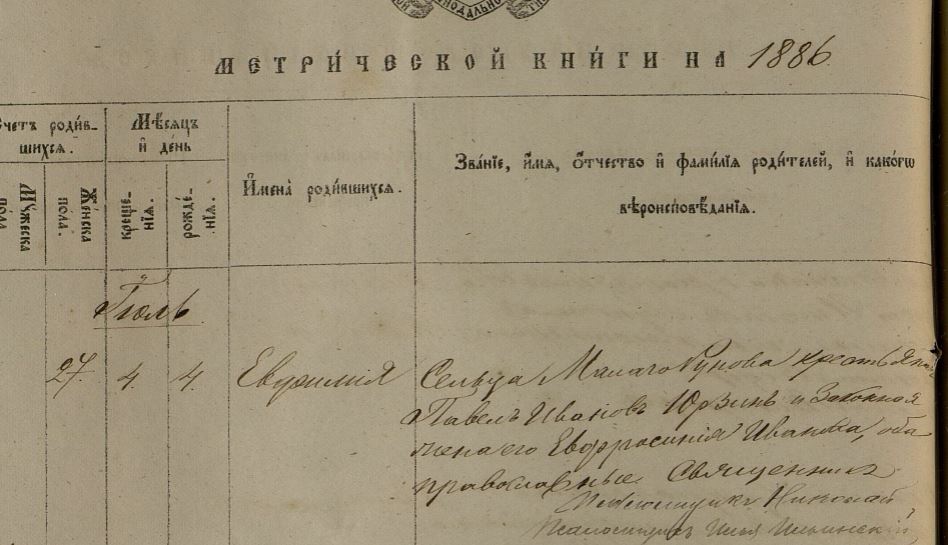 МЕТРИ́ЧЕСКОЙ КНИ́ГИ НА 1886.
Счетъ роди́в-
шихся.
Мѣ́сяцъ
и҆ де́нь
И҆мена̀ роди́вшихся.
Зва́нїе, и҆́мя, о҆́тчество и҆ фами́лїя роди́телей, и҆ како́гѡ
вѣроисповѣ́данїя.
Мꙋ́жеска
по́ла.
Же́нска
по́ла.
креще-
нїя.
рожде́-
нїя.
Іюль
27. 4. 4. Евфимія
Сельца Малаго Рунова крестьянинъ
Павелъ Ивановъ Юрзинъ и Законная
жена его Евфросинія Иванова, оба
православные. Священникъ
Николай
Псаломщикъ Илья Ильинскій